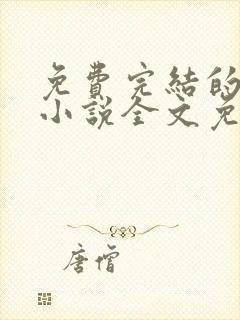 免費完結的
小說全文免
唐僧